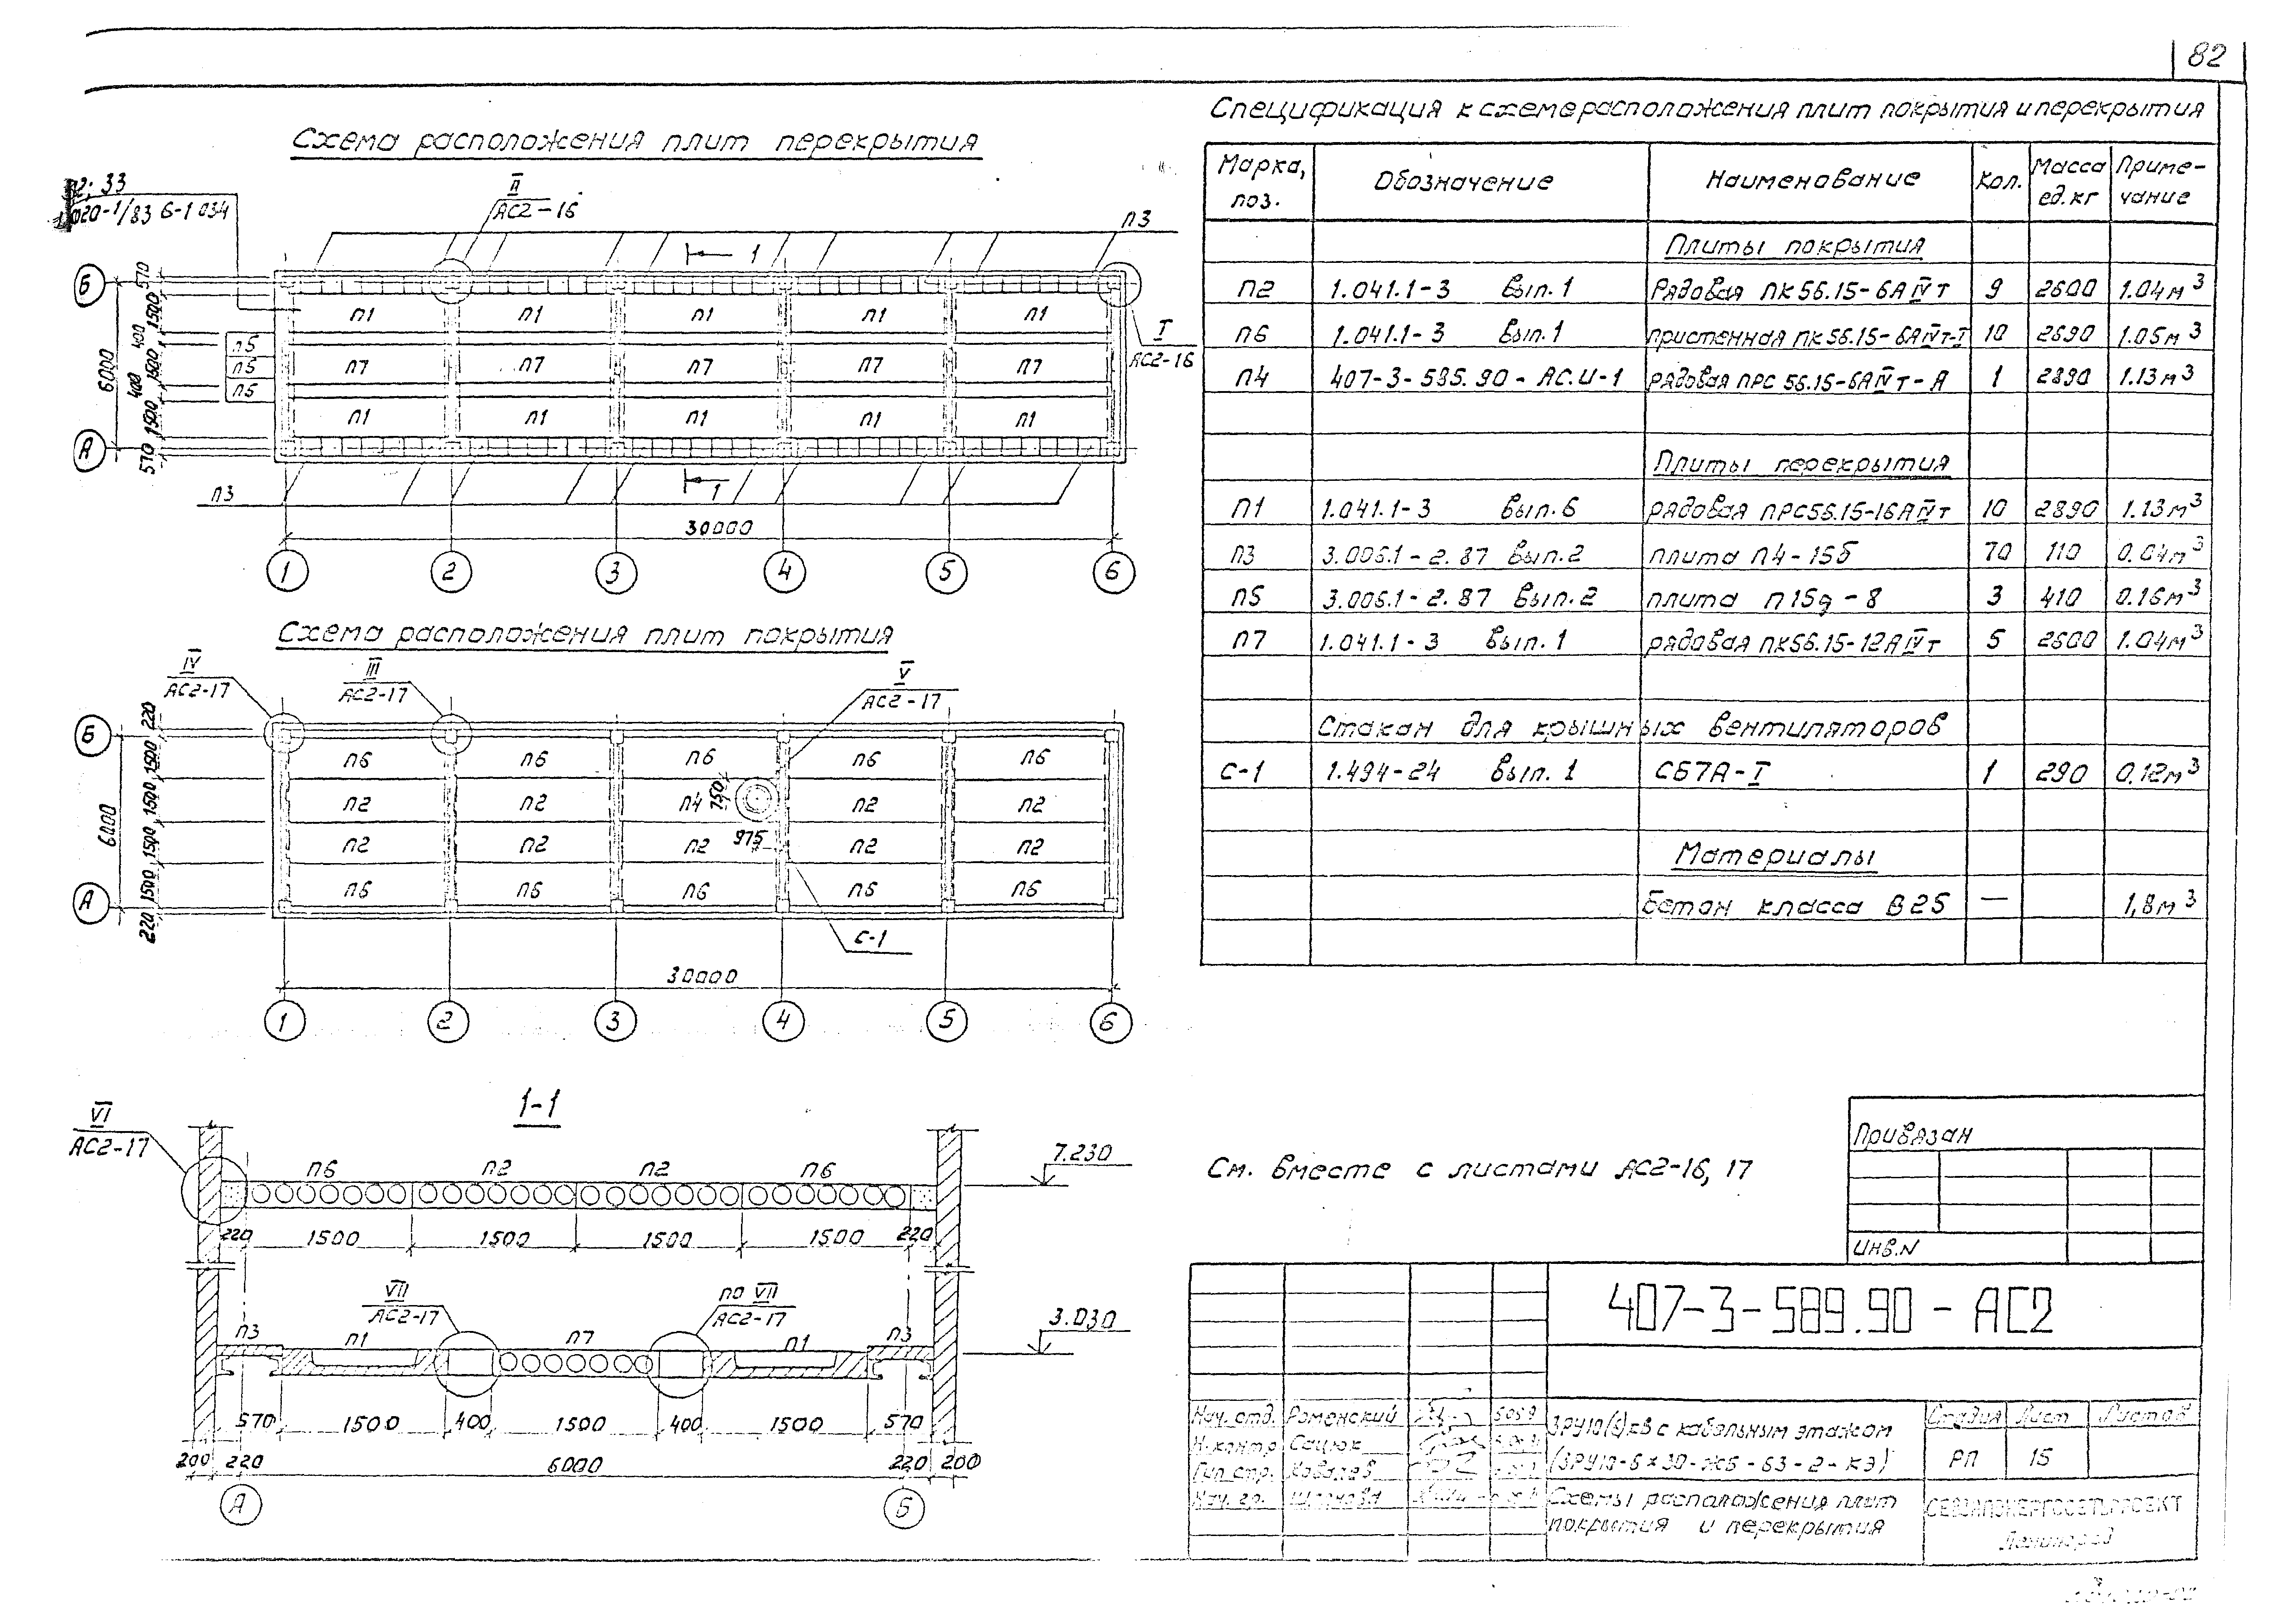 82
Схема расположения плит перекрытия
II
АС2-16
П3
1
Б
570
1500
400
1500
400
1500
570
6000
А
п5
п5
п5
П1 П1 П1 П1 П1
П7 П7 П7 П7 П7
П1 П1 П1 П1 П1
I
АС2-16
П3
1
30000
1 2 3 4 5 6
Схема расположения плит покрытия
IV
АС2-17
III
АС2-17
V
АС2-17
Б
220
1500
1500
1500
1500
220
6000
А
П6 П6 П6 П6 П6
П2 П2 П4 750 П2 П2
П2 П2 П2 975 П2 П2
П6 П6 П6 П6 П6
С-1
30000
1 2 3 4 5 6
1-1
VI
АС2-17
П6 П2 П2 П6
7.230
220 1500 1500 1500 1500 220
VII
АС2-17
по VII
АС2-17
П3 П1 П7 П1 П3
3.030
570 1500 400 1500 400 1500 570
200 220 6000 220 200
А Б
Спецификация к схеме расположения плит покрытия и перекрытия
Марка, поз. Обозначение Наименование Кол. Масса ед. кг Приме-чание
Плиты покрытия
П2 1.041.1-3 Вып. 1 Рядовая ПК 56.15-6АIVт 9 2600 1.04м3
П6 1.041.1-3 Вып. 1 пристенная ПК 56.15-6АIVт-I 10 2690 1.05м3
П4 407-3-585.90-АС.И-1 рядовая ПРС 56.15-6АIVт-А 1 2890 1.13м3
Плиты перекрытия
П1 1.041.1-3 Вып. 6 рядовая ПРС56.15-16АIVт 10 2890 1.13м3
П3 3.006.1-2.87 Вып. 2 плита П4-15б 70 110 0.04м3
П5 3.006.1-2.87 Вып. 2 плита П15д-8 3 410 0.16м3
П7 1.041.1-3 Вып. 1 рядовая ПК56.15-12АIVт 5 2600 1.04м3
Стакан для крышных вентиляторов
С-1 1.494-24 Вып. 1 СБ7А-I 1 290 0.12м3
Материалы
Бетон класса В25 — 1,8м3
См. вместе с листами АС2-16, 17
Привязан
Инв.N
407-3-589.90-АС2
Нач. отд. Роменский
Н.контр Сацюк
Гип стр. Ковалев
Нач. гр.
ЗРУ10(6)кв с кабельным этажом
(ЗРУ10-6х30-ЖБ-63-2-КЭ)
Стадия Лист Листов
РП 15
Схемы расположения плит
покрытия и перекрытия
СЕВЗАПЭНЕРГОСЕТЬПРОЕКТ
Ленинград